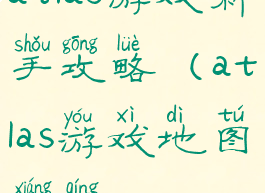 atlas游戏新
shǒu gōng lüè
手攻略（at
yóu xì dì tú
las游戏地图
xiáng qíng